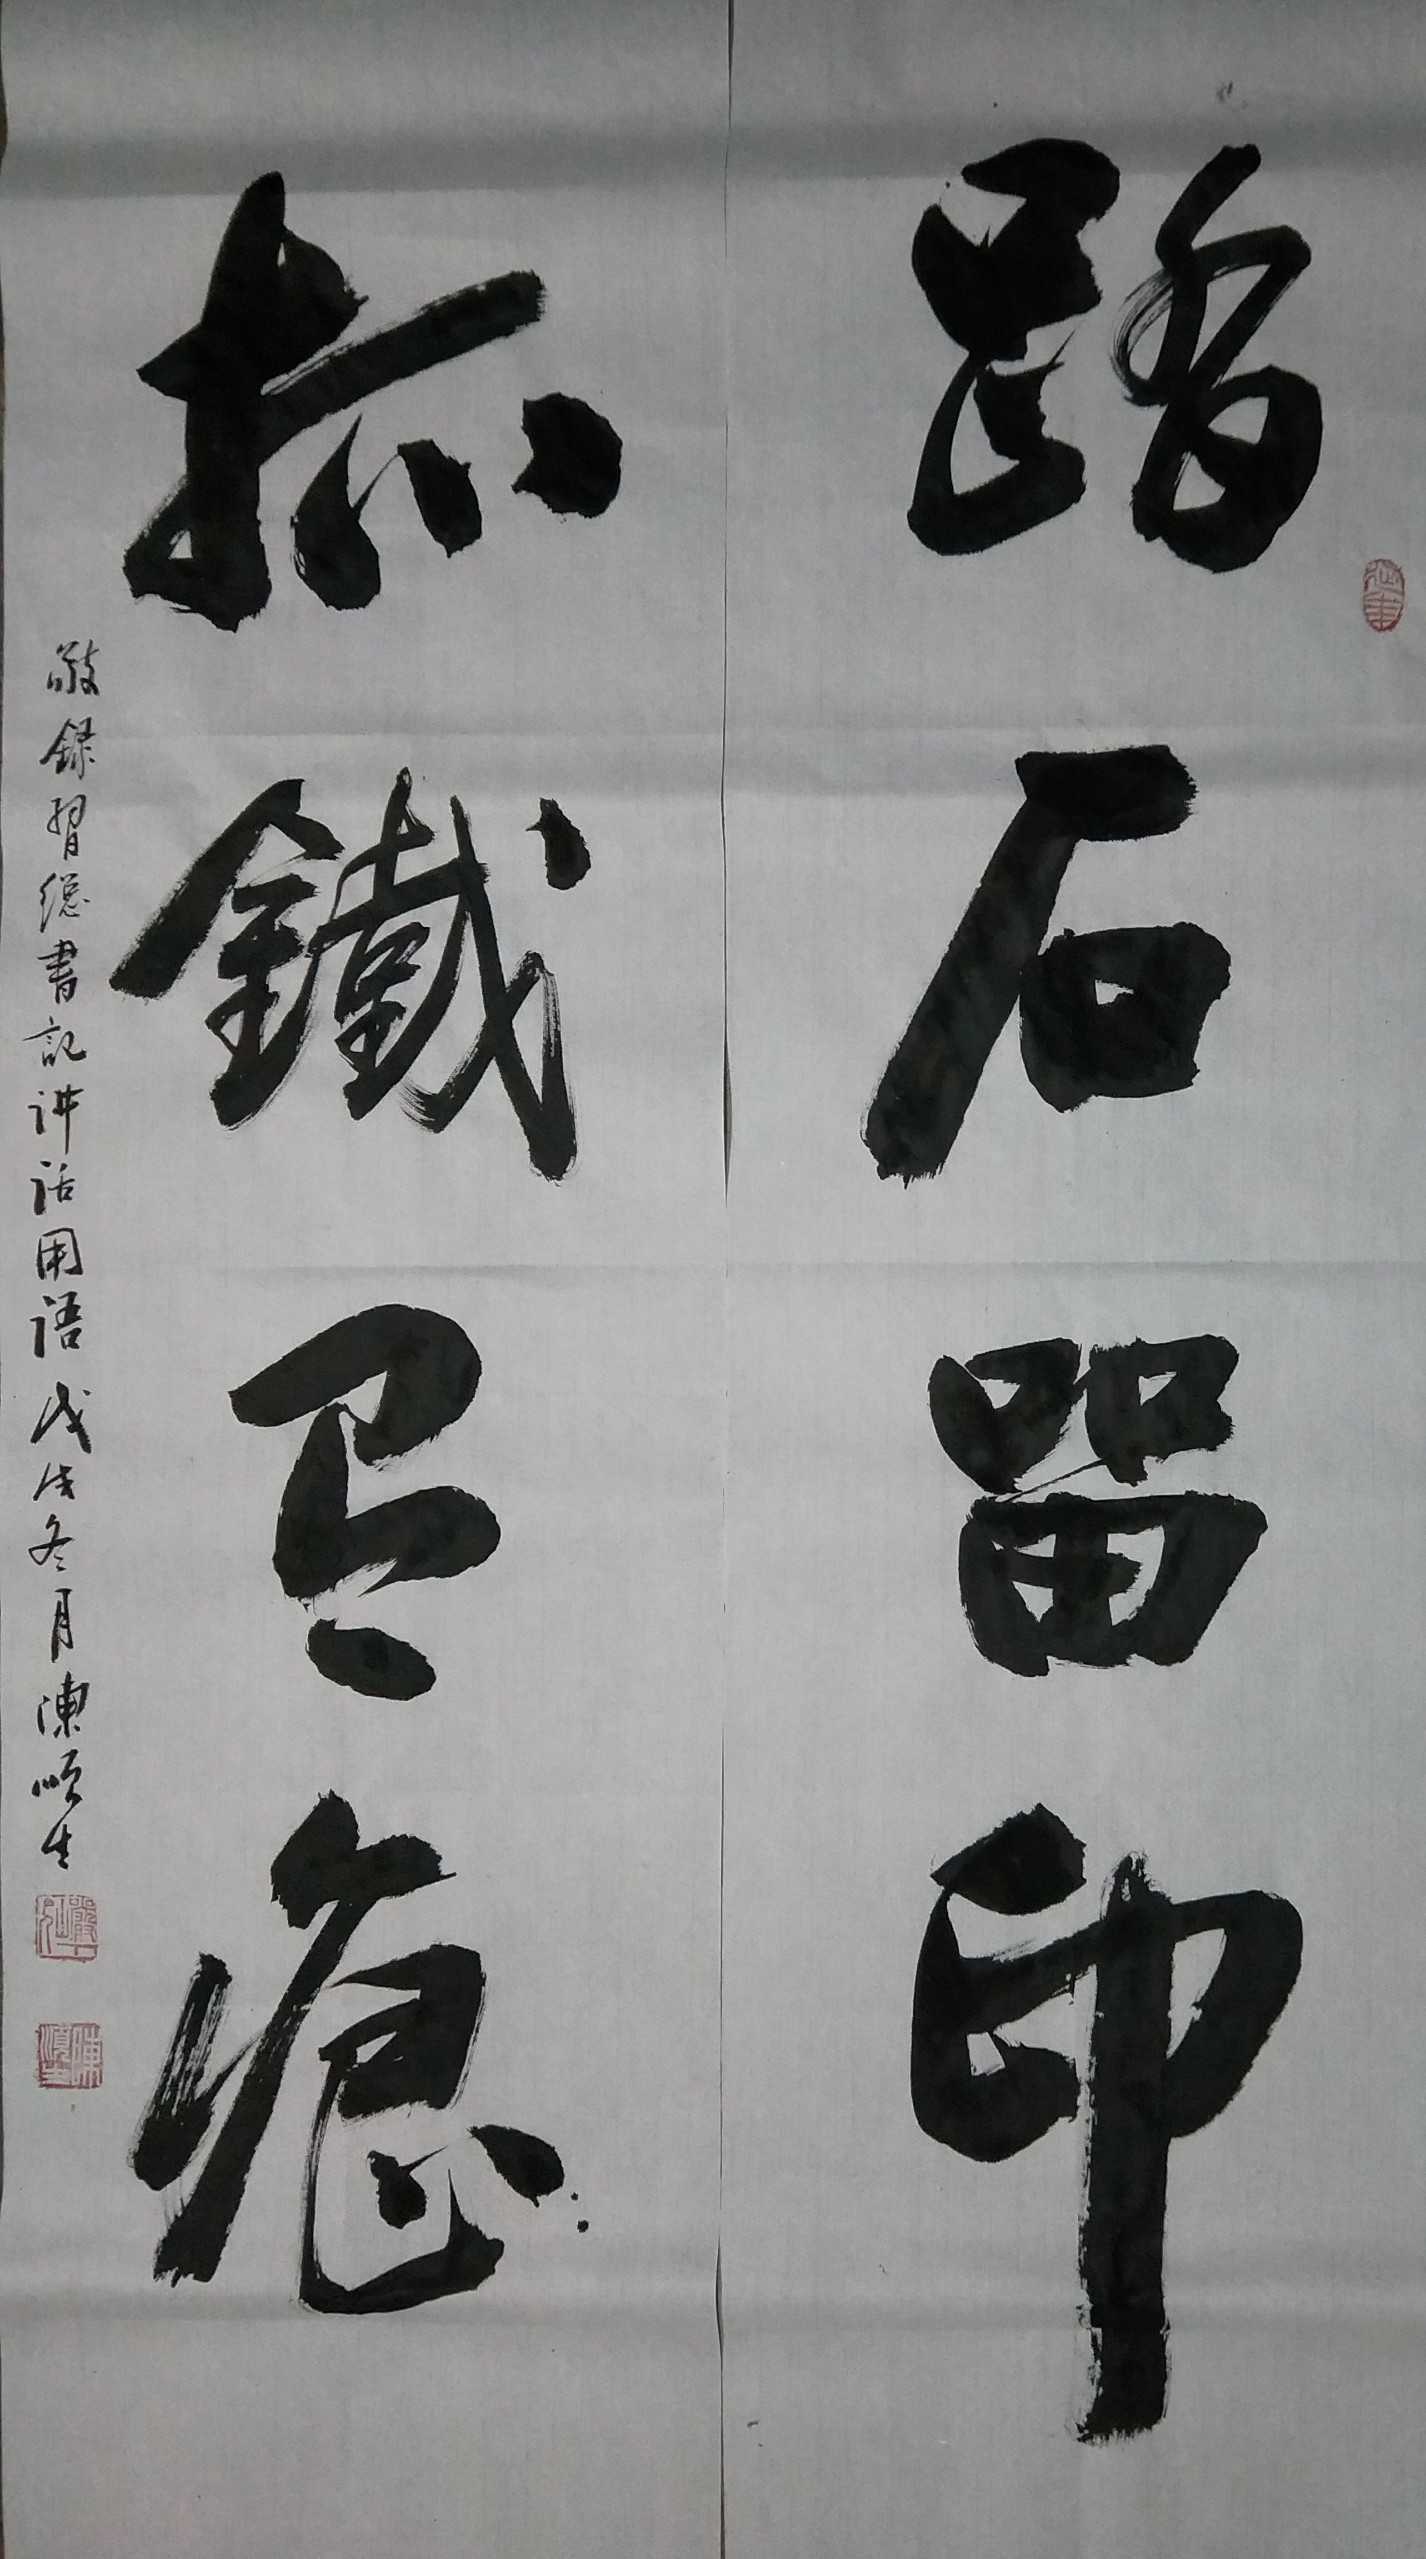 踏石留印
抓鐵有痕
敬録習總書記讲话用语戊戌冬月陳順生